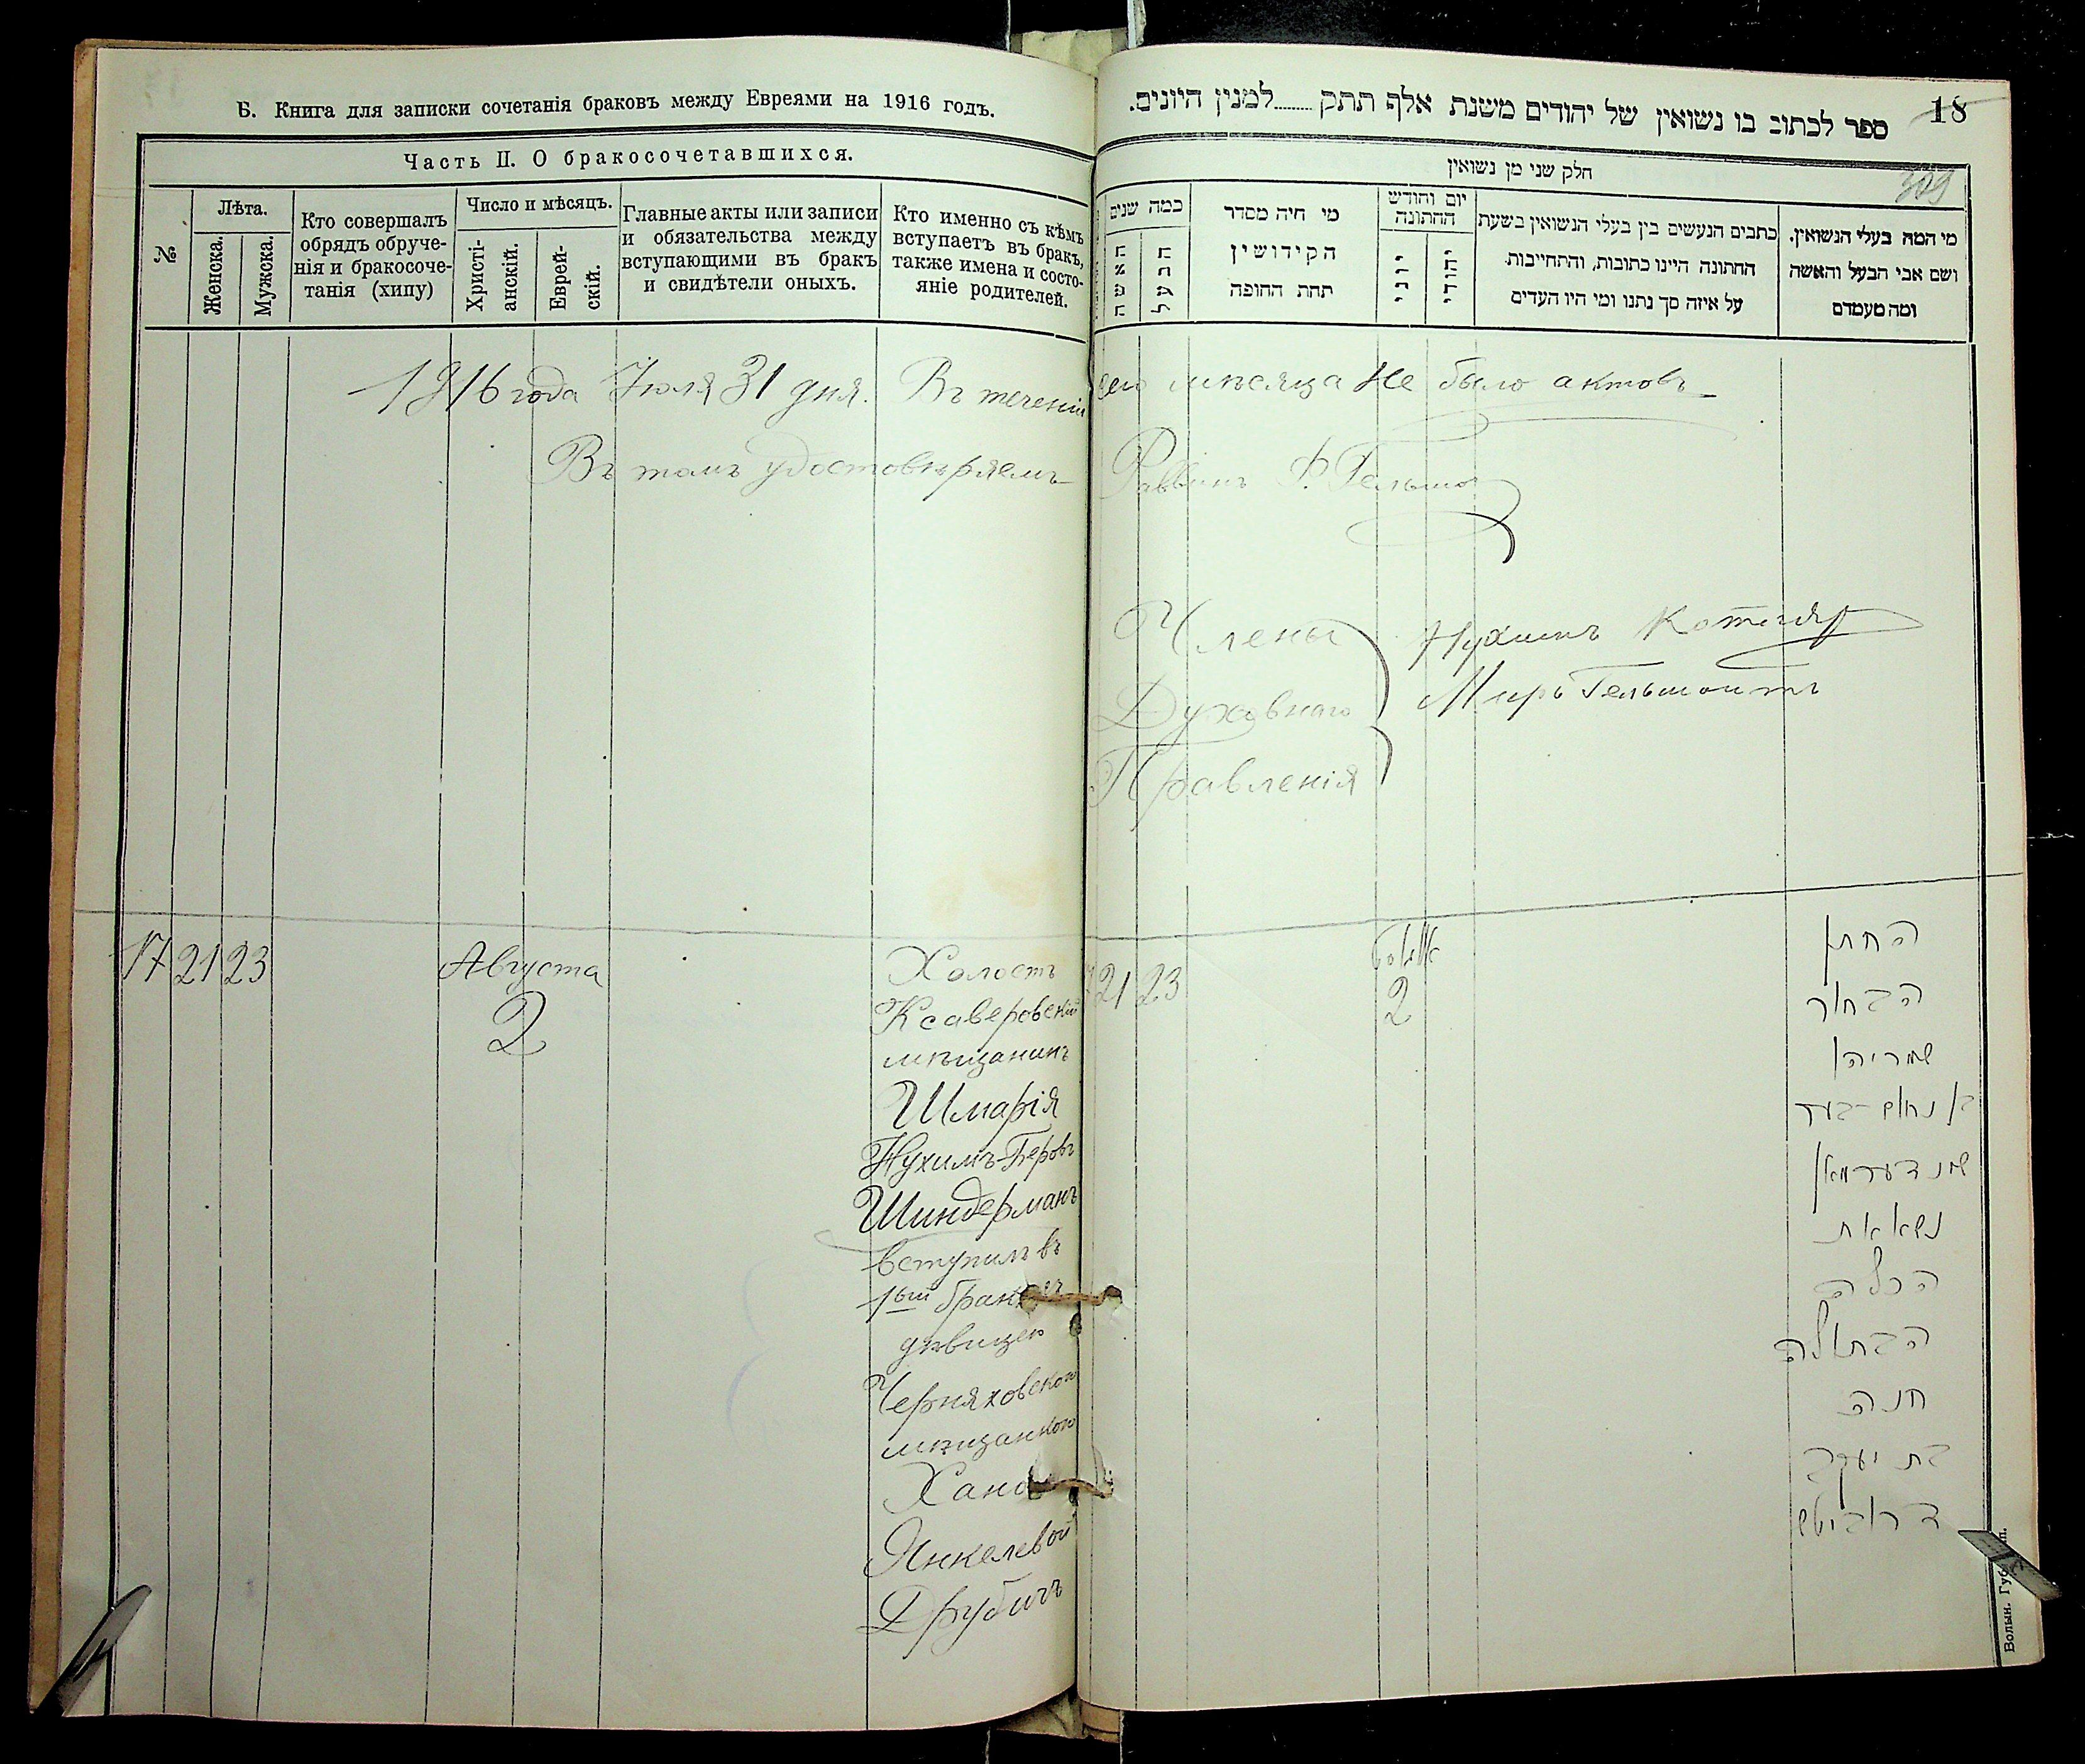 Б. Книга для записки сочетанія браковъ между Евреями на 1916 годъ.
Часть II. О бракосочетавшихся.
№
Лѣта.
Женска.
Мужска.
Кто совершалъ
обрядъ обруче-
нія и бракосоче-
танія (хипу)
Число и мѣсяцъ.
Христі-
анскій.
Еврей-
скій.
Главные акты или записи
и обязательства между
вступающими въ бракъ
и свидѣтели оныхъ.
Кто именно съ кѣмъ
вступаетъ въ бракъ,
также имена и состо-
яніе родителей.
18
ספר לכתוב בו נשואין של יהודים משנת אלף תתק ........ למנין היונים.
309
חלק שני מן נשואין
כמה שנים
האשה
הבעל
מי היה מסדר
הקידושין
תחת החופה
יום וחודש
החתונה
יוני
יהודי
כתבים הנעשים בין בעלי הנשואין בשעת
החתונה היינו כתובות, והתחייבות
על איזה סך נתנו ומי היו העדים
מי המה בעלי הנשואין.
ושם אבי הבעל והאשה
ומה מעמדם
1916 года Іюля 31 дня. Въ теченіи сего мѣсяца не было актовъ
Въ томъ удостовѣряемъ Раввинъ
Члены
Духовнаго
Правленія
Нухимъ Котляр
Меръ Гельмонтъ
17 21 23
Августа
2
Холостъ
Ксаверовскій
мѣщанинъ
Шмарія
Нухимъ-Беровъ
Шиндерманъ
вступилъ въ
1ый бракъ съ
дѣвицею
Черняховскою
мѣщанкою
Ханой
Янкелевой
Друбичъ
21 23
אוגוסט
2
החתן
הבחור
שמריהו
בן נחום-בער
שינדערמאן
נשא את
הכלה
הבתולה
חנה
בת יעקב
דרוביטש
Волын. Губ. Тип.